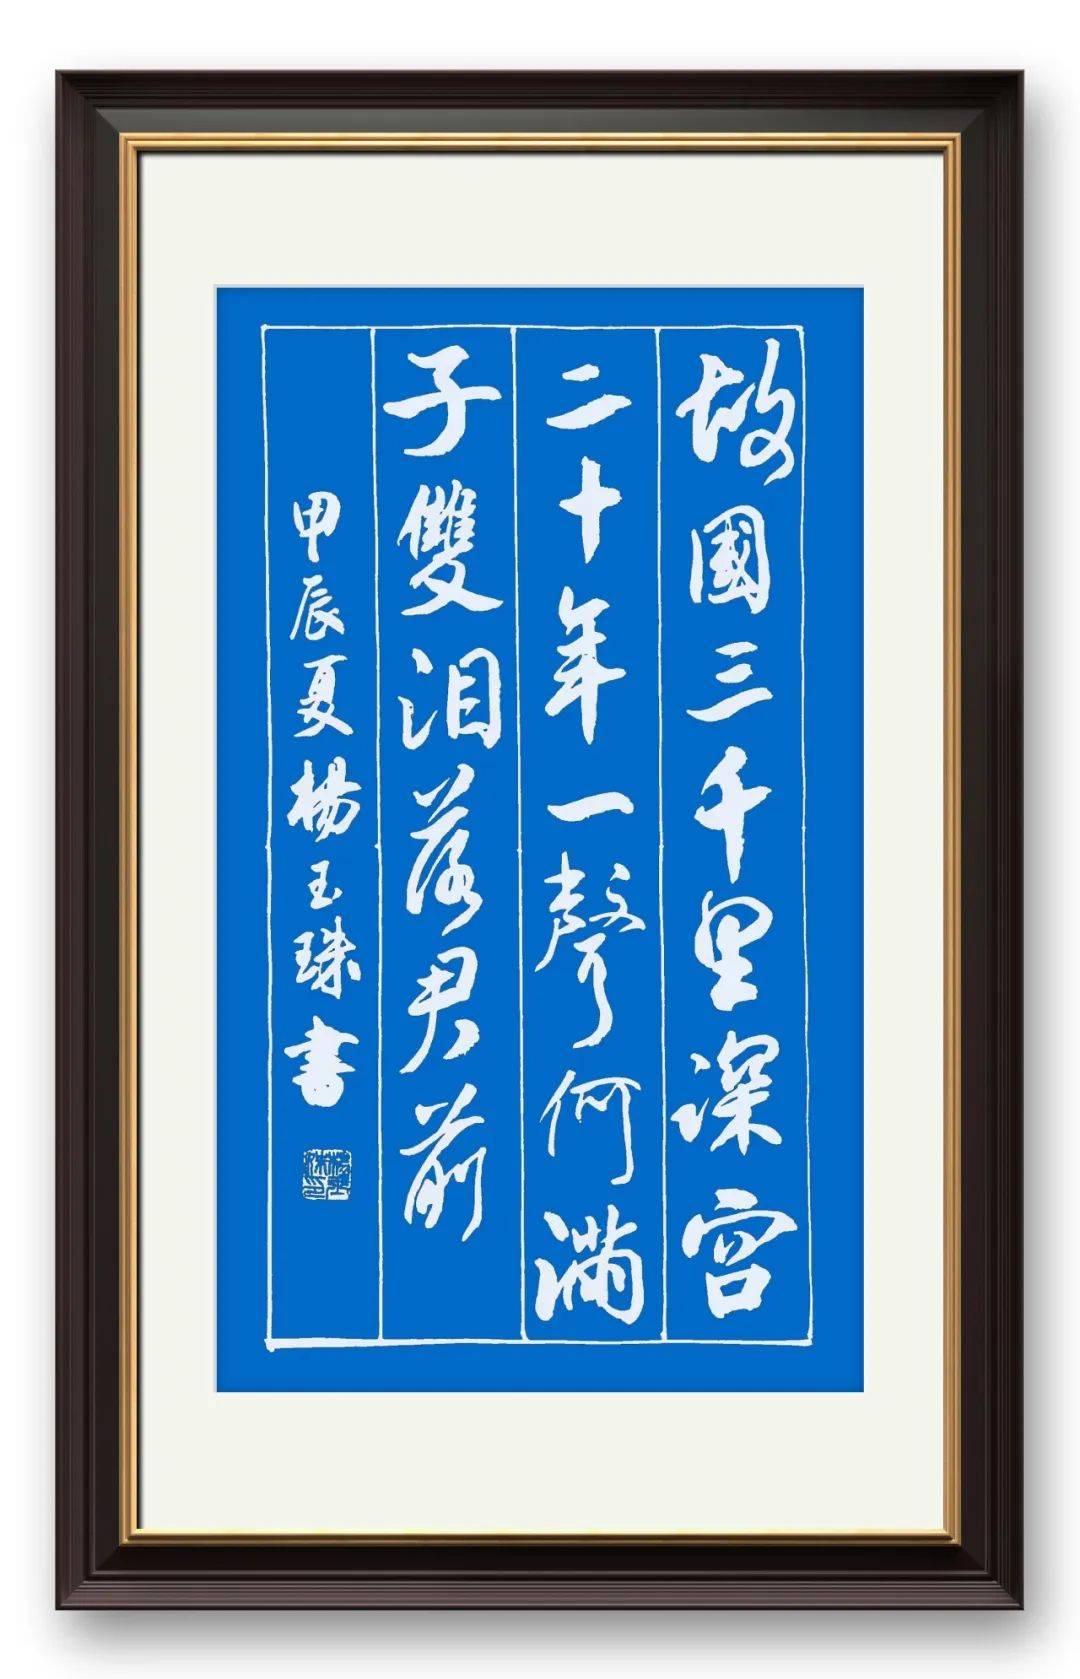 故國三千里深宫
二十年一聲何滿
子雙泪落君前
甲辰夏楊玉珠書